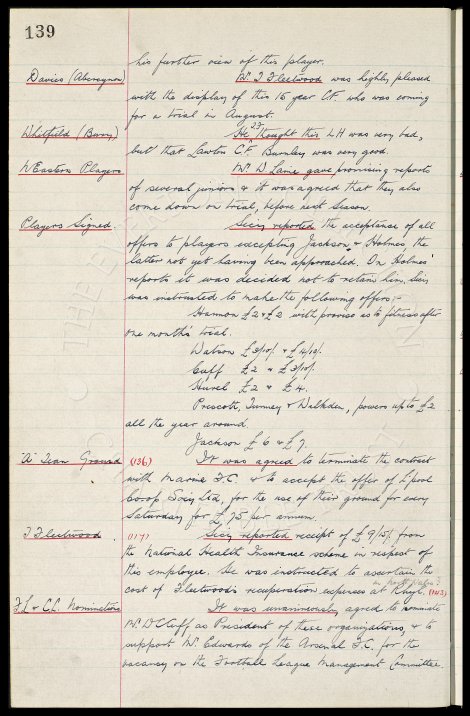 139
his further view of this player.
Davies (Aberaynon) Mr. T Fleetwood was highly pleased
with the display of this 15 year CF. who was coming
for a trial in August.
Whetfield (Barry) He thought this LH was very bad,
but that Lawton C.F. Burnley was very good.
N Eastern Players Mr. D Lane gave promising reports
of several juniors & it was agreed that they also
come down on trial, before next Season.
Players Signed. Secy reported the acceptance of all
offers to players excepting Jackson & Holmes, the
latter not yet having been approached. On Holmes'
reports it was decided not to retain him, Secy
was instructed to make the following offers:-
Hannon £2 & £2 with proviso as to fitness after
one month's trial.
Watson £3/10/- & £4/10/-
Cuff £2 & £3/10/-
Hurel £2 & £4.
Prescott, Tunney & Walkden, powers up to £2
all the year around.
Jackson £6 & £7.
"A" Team Ground (136) It was agreed to terminate the contract
with Marine F.C. & to accept the offer of Lpool
Co-op Socy Ltd, for the use of their ground for every
Saturday for £75 per annum.
T Fleetwood. (117) Secy reported receipt of £9/5/- from
the National Health Insurance scheme in respect of
this employee. He was instructed to ascertain the
in North Wales?
cost of Fleetwood's recuperation expenses at Rhyl. (143)
F.L & C.L. Nominations It was unanimously agreed to nominate
Mr W C Cuff as President of these organizations, & to
support Mr. Edwards of the Arsenal F.C. for the
vacancy on the Football League Management Committee.